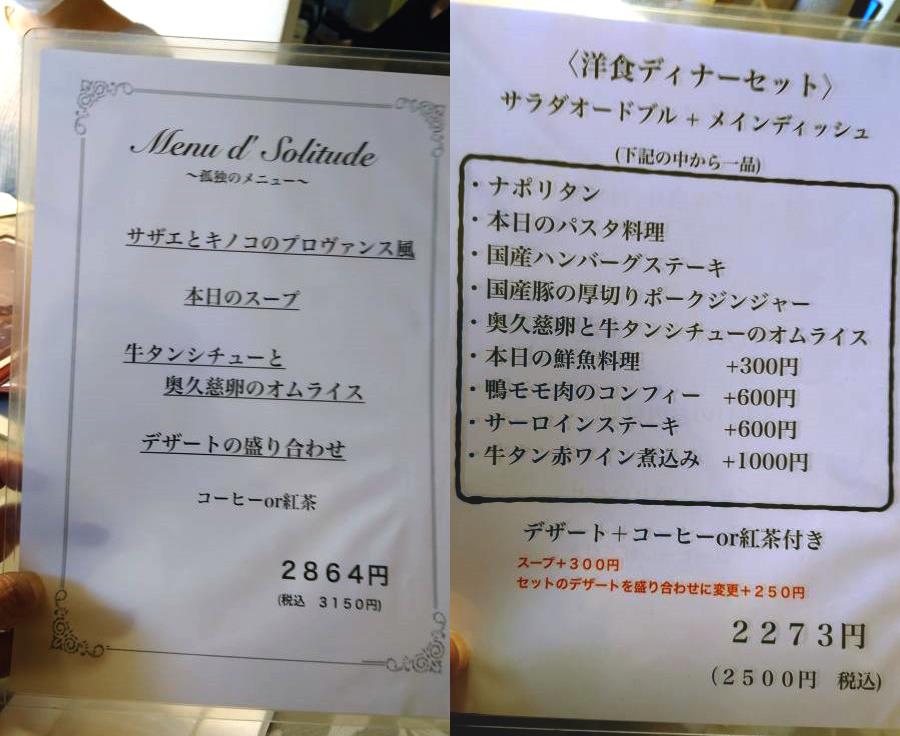 Menu d' Solitude
～孤独のメニュー～
サザエとキノコのプロヴァンス風
本日のスープ
牛タンシチューと
奥久慈卵のオムライス
デザートの盛り合わせ
コーヒーor紅茶
2864円
(税込 3150円)
〈洋食ディナーセット〉
サラダオードブル + メインディッシュ
(下記の中から一品)
・ナポリタン
・本日のパスタ料理
・国産ハンバーグステーキ
・国産豚の厚切りポークジンジャー
・奥久慈卵と牛タンシチューのオムライス
・本日の鮮魚料理 +300円
・鴨モモ肉のコンフィー +600円
・サーロインステーキ +600円
・牛タン赤ワイン煮込み +1000円
デザート＋コーヒーor紅茶付き
スープ+３００円
セットのデザートを盛り合わせに変更+２５０円
２２７３円
(２５００円 税込)